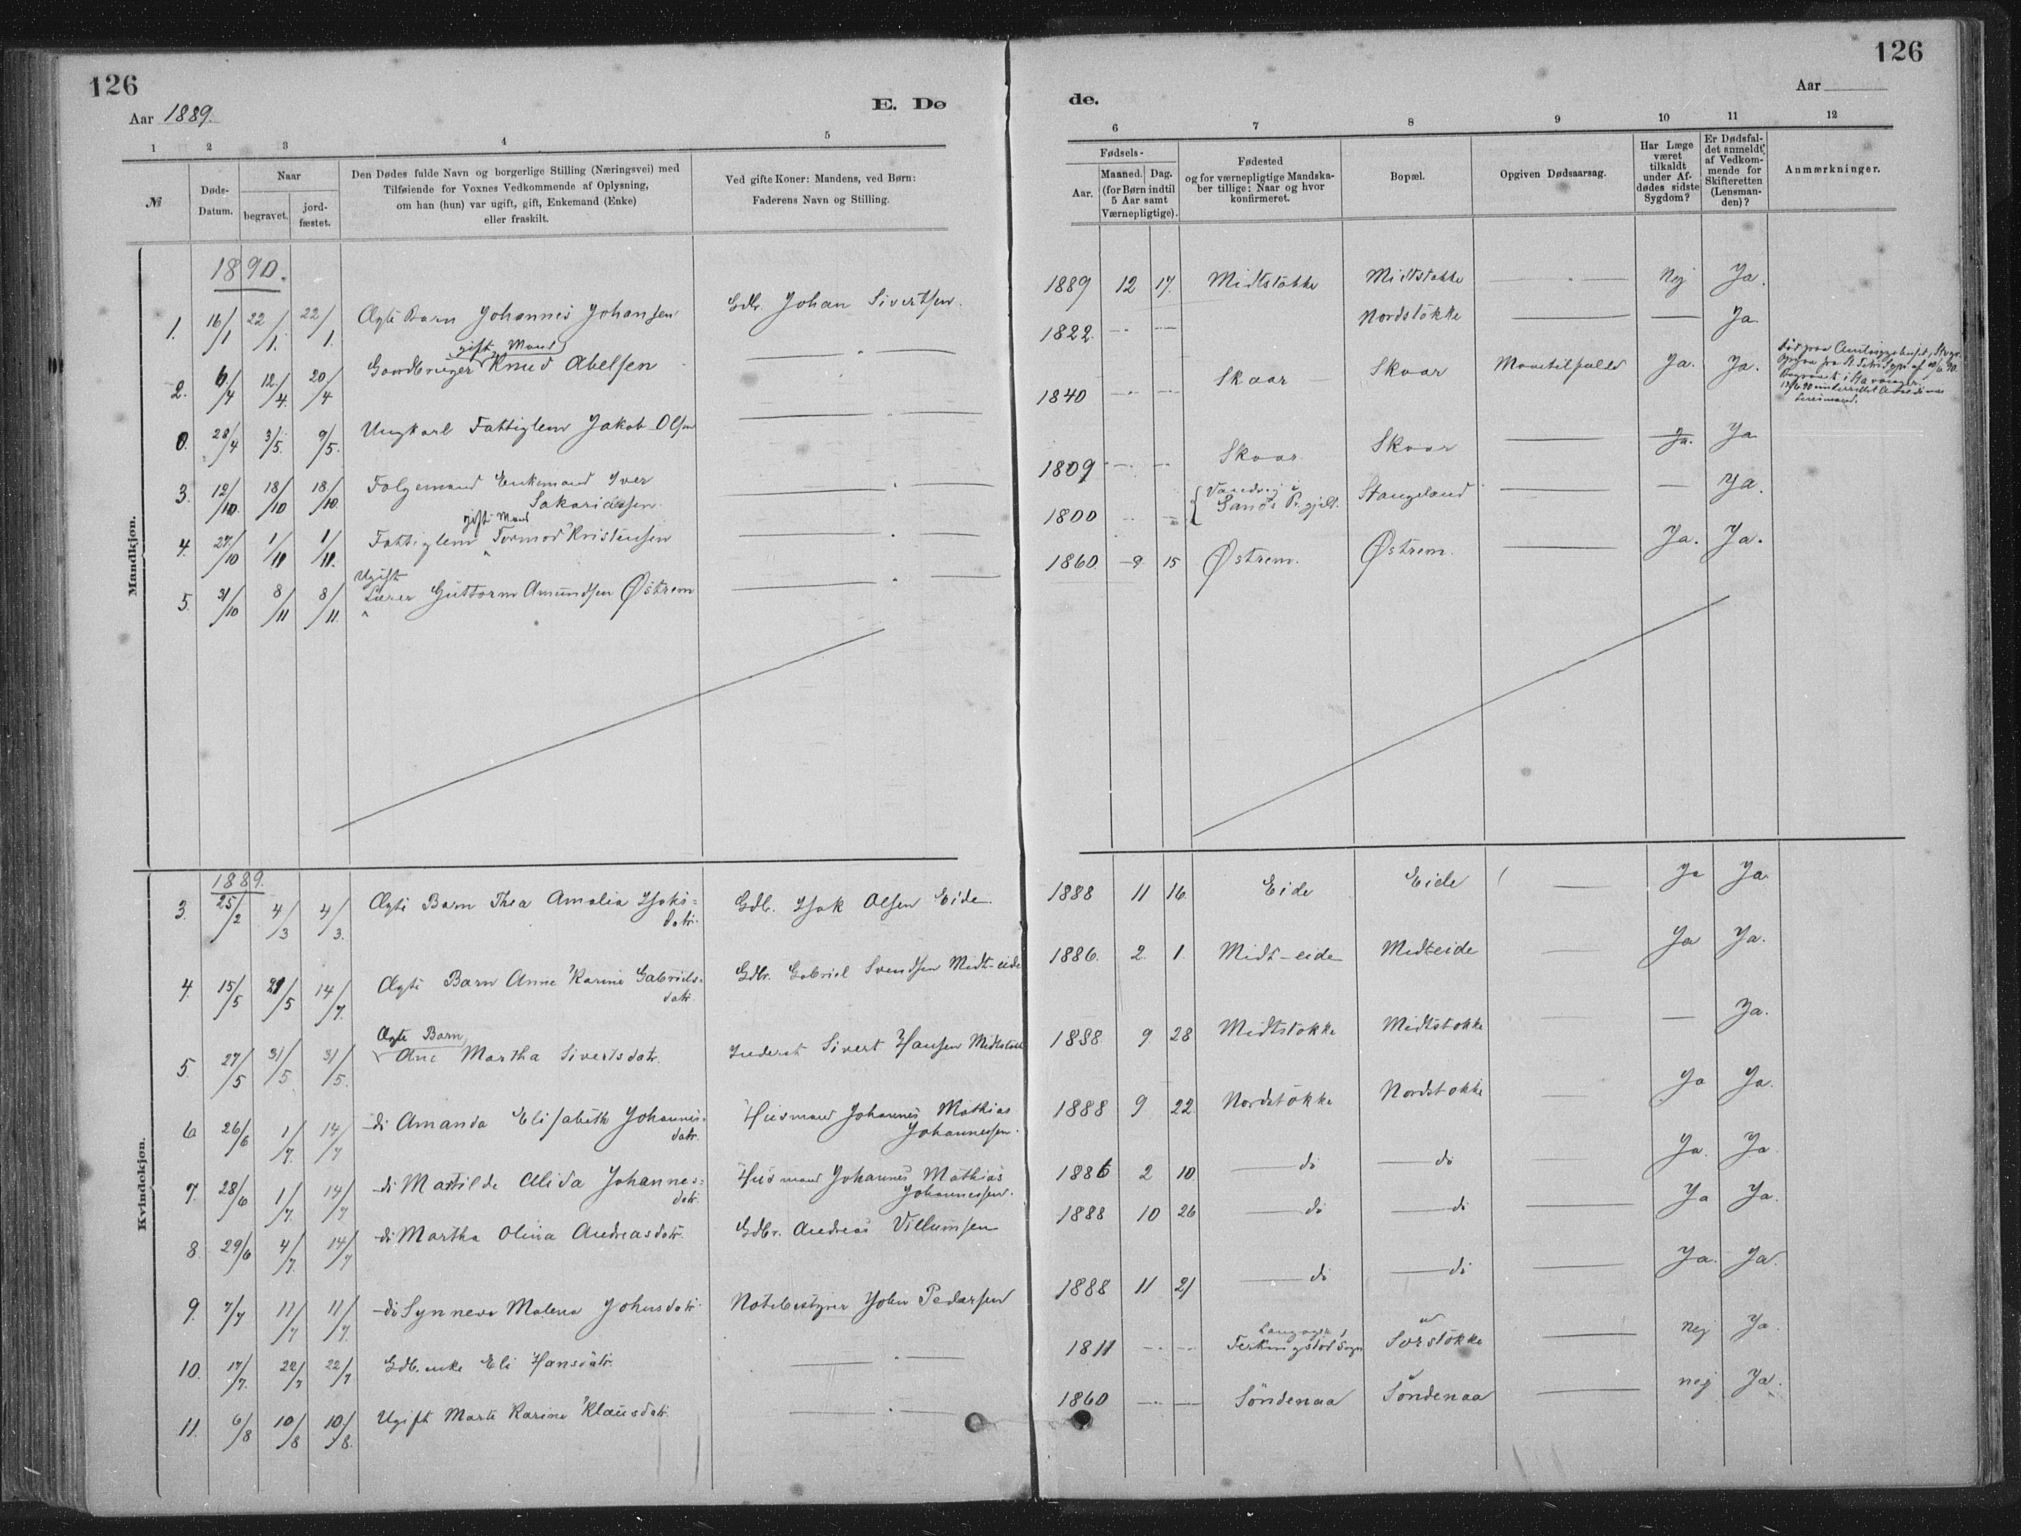 126
Aar 1889.
E. Dø
1 2 3 4 5
№
Døds-Datum.
Naar
begravet.
jord-fæstet.
Den Dødes fulde Navn og borgerlige Stilling (Næringsvei) med
Tilføiende for Voxnes Vedkommende af Oplysning,
om han (hun) var ugift, gift, Enkemand (Enke)
eller fraskilt.
Ved gifte Koner: Mandens, ved Børn:
Faderens Navn og Stilling.
Mandkjøn.
1890.
1. 16/1 22/1. 22/1. Ægte Barn Johannes Johansen Gdbr. Johan Sivertsen.
gift Mand
2. 6/4 12/4. 20/4 Gaardbruger Knud Abelsen — " —
0. 28/4 3/5. 9/5. Ungkarl Fattiglem Jakob Olsen — " —
3. 12/10. 18/10 18/10. Folgemand Enkemand Iver
Sakariasen. — " —
gift Mand
4. 27/10 1/11 1/11. Fattiglem Tormod Kristensen — " —
Ugift
5. 31/10 8/11 8/11. Lærer Guttorm Amundsen Østrem — " —
Kvindekjøn.
1889.
3. 25/2 4/3 4/3. Ægte Barn Thea Amalia Isaks=
datr. Gdb. Isak Olsen Eide.
4. 15/5 21/5 14/7. Ægte Barn Anne Karine Gabriels-
datr. Gdbr. Gabriel Svendsen Midt-eide
Ægte Barn
5. 27/5 31/5 31/5. Ane Martha Sivertsdatr. Inderst Sivert Hansen Midtstokke
6 26/6 1/7. 14/7 di Amanda Elisabeth Johannes=
datr. Husmand Johannes Mathias
Johannessen.
7. 28/6 1/7. 14/7 di Matilde Alida Johannes=
datr. Husmand Johannes Mathias
Johannessen.
8. 29/6 4/7. 14/7 di Martha Olina Andreasdatr. Gdbr. Andreas Villumsen
9. 7/7 11/7 11/7. di Synneva Malena Johnsdatr. Notebestyrer John Pedersen
10. 17/7. 22/7 22/7 Gdb.enke Eli Hansdatr. — " —
11. 6/8 10/8 10/8. Ugift Marte Karine Klausdatr. — " —
126
Aar
de.
6 7 8 9 10 11 12
Fødsels-
Aar.
Maaned. Dag.
(for Børn indtil
5 Aar samt
Værnepligtige).
Fødested
og for værnepligtige Mandska-
ber tillige: Naar og hvor
konfirmeret.
Bopæl.
Opgiven Dødsaarsag.
Har Læge
været
tilkaldt
under Af-
dødes sidste
Sygdom?
Er Dødsfal-
det anmeldt
af Vedkom-
mende for
Skifteretten
(Lensman-
den)?
Anmærkninger.
1889 12 17. Midtstokke Midtstokke — " — Nej Ja.
1822. — — Nordstokke — — Ja
1840 — — Skaar — Skaar Mavetilfælde Ja. Ja.
1809 — — Skaar Skaar — Ja. Ja
1800 — — Sands Pr.gjeld. Stangeland — — Ja.
1860. 9 15 Østrem. Østrem. — Ja. Ja.
1888 11 16. Eide Eide — Ja Ja.
1886. 2. 1. Midt-eide Midt-eide — Ja Ja.
1888 9 28 Midtstokke Midtstokke — — Ja.
1888 9 22. Nordstokke Nordstokke — Ja Ja.
1886 2 10 — di — di — Ja. Ja
1888 10 26 — di — di — Ja Ja.
1888 11 21 — di — di — Ja. Ja.
1811 — — Ferkingstad Sogn Sørstokke — nej Ja.
1860 — — Søndenaa Søndenaa — nej Ja.